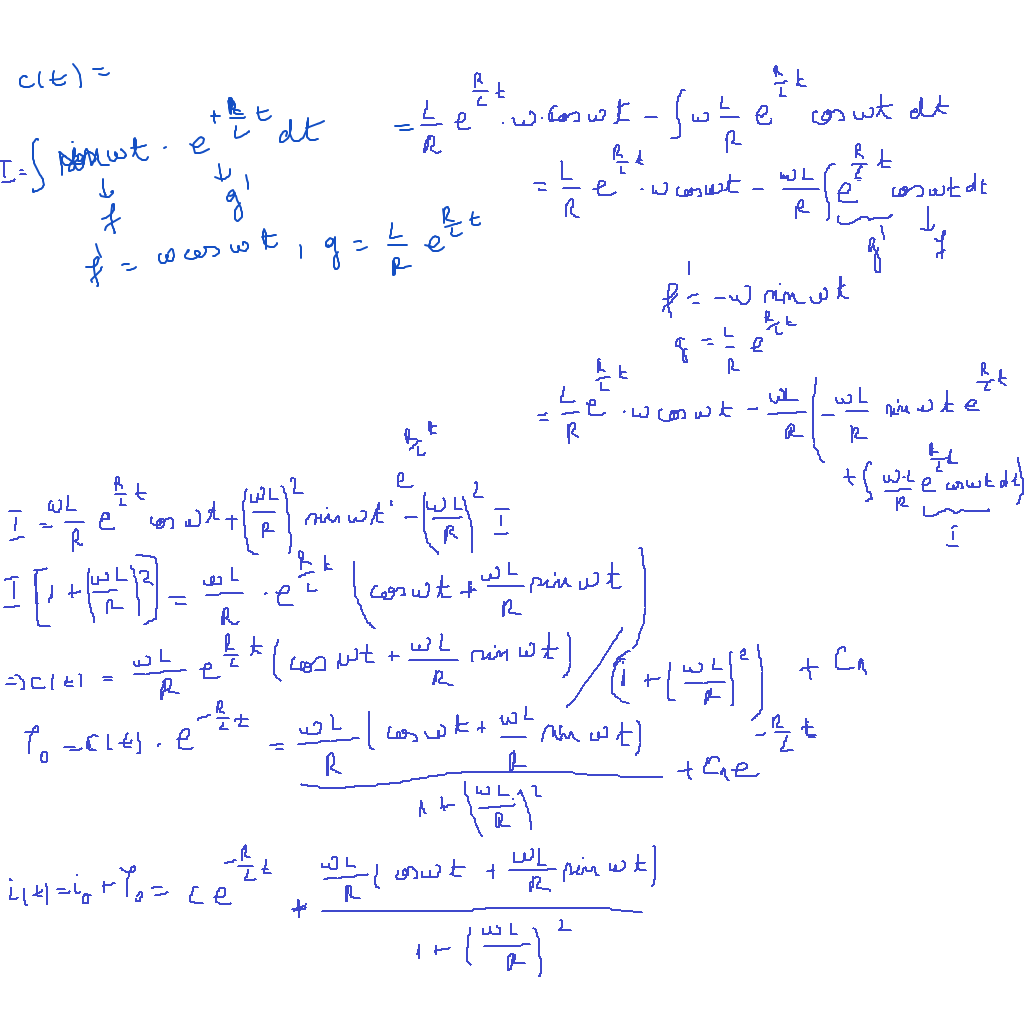 c(t) =
I = ∫ sin ωt · e^{+R/L t} dt
↓ f ↓ g'
f' = ω cos ωt , g = L/R e^{R/L t}
= L/R e^{R/L t} · ω · cos ωt - ∫ ω L/R e^{R/L t} cos ωt dt
= L/R e^{R/L t} · ω cos ωt - ωL/R ∫ e^{R/L t} cos ωt dt
g' f
f' = -ω sin ωt
g = L/R e^{R/L t}
= L/R e^{R/L t} · ω cos ωt - ωL/R ( - ωL/R sin ωt e^{R/L t}
+ ∫ ω·L/R e^{R/L t} cos ωt dt)
I
I = ωL/R e^{R/L t} cos ωt + (ωL/R)² sin ωt · e^{R/L t} - (ωL/R)² I
I [1 + (ωL/R)²] = ωL/R · e^{R/L t} (cos ωt + ωL/R sin ωt)
=> c(t) = ωL/R e^{R/L t} (cos ωt + ωL/R sin ωt) / (1 + (ωL/R)²) + C₁
φ₀ = c(t) · e^{-R/L t} = ωL/R (cos ωt + ωL/R sin ωt) / 1 + (ωL/R)² + C₁ e^{-R/L t}
i(t) = i₀ + φ₀ = c e^{-R/L t} + ωL/R (cos ωt + ωL/R sin ωt) / 1 + (ωL/R)²